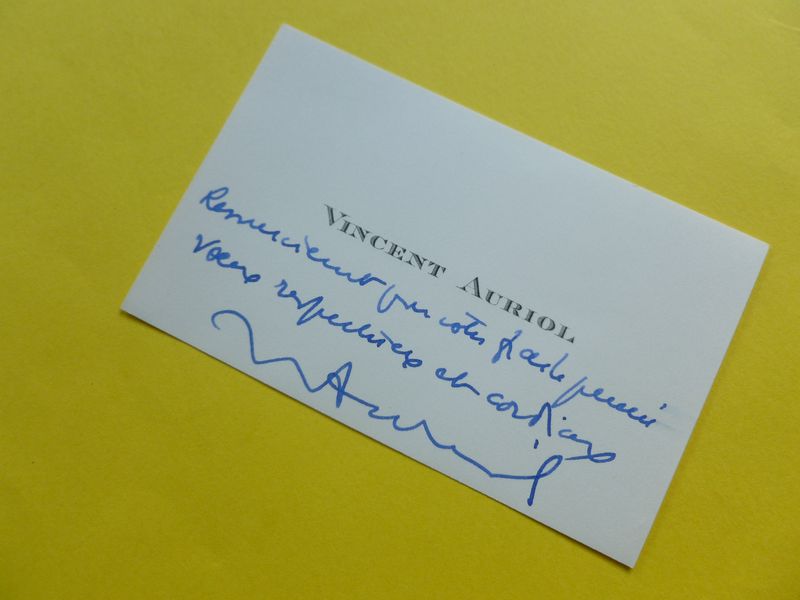 VINCENT AURIOL
Remerciements pour votre pensée
Voeux respectueux et cordiaux
V Auriol